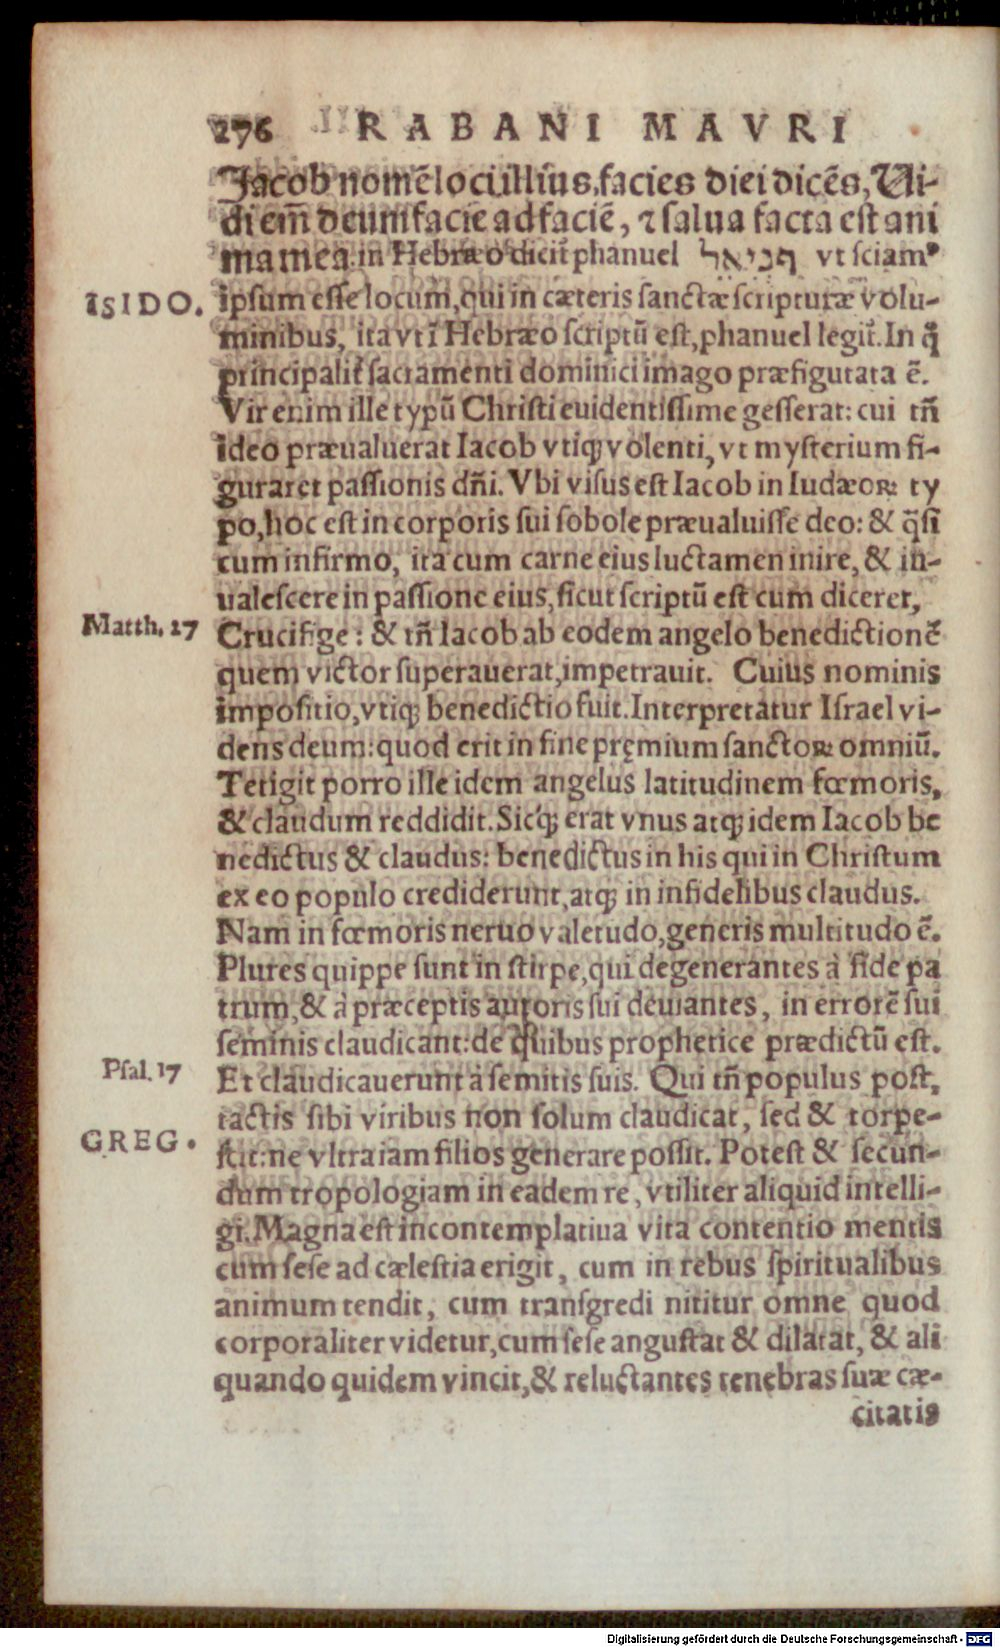 276 RABANI MAVRI
Jacob nomē loci illius, facies dei dicēs, Ui-
di em̄ deum facie ad faciē, ⁊ salua facta est ani
ma mea. in Hebræo dicit᷑ phanuel פניאל vt sciamꝰ
ISIDO.
ipsum esse locum, qui in cæteris sanctæ scripturæ volu-
minibus, ita vt ī Hebræo scriptū est, phanuel legit᷑. In q̃
principalit᷑ sacramenti dominici imago præfigurata ē.
Vir enim ille typū Christi euidentissime gesserat: cui tñ
ideo præualuerat Iacob vtiqꝫ volenti, vt mysterium fi-
guraret passionis dñi. Vbi visus est Iacob in Iudæoꝝ ty
po, hoc est in corporis sui sobole præualuisse deo: & q̃si
cum infirmo, ita cum carne eius luctamen inire, & in-
ualescere in passione eius, sicut scriptū est cum diceret,
Matth. 27
Crucifige: & tñ Iacob ab eodem angelo benedictionē
quem victor superauerat, impetrauit. Cuius nominis
impositio, vtiqꝫ benedictio fuit. Interpretatur Israel vi-
dens deum: quod erit in fine pręmium sanctoꝝ omniū.
Tetigit porro ille idem angelus latitudinem fœmoris,
& claudum reddidit. Sicqꝫ erat vnus atqꝫ idem Iacob be
nedictus & claudus: benedictus in his qui in Christum
ex eo populo crediderunt, atqꝫ in infidelibus claudus.
Nam in fœmoris neruo valetudo, generis multitudo ē.
Plures quippe sunt in stirpe, qui degenerantes à fide pa
trum, & à præceptis autoris sui deuiantes, in errorē sui
seminis claudicant: de quibus prophetice prædictū est.
Psal. 17
Et claudicauerunt à semitis suis. Qui tñ populus post,
tactis sibi viribus non solum claudicat, sed & torpe-
GREG.
scit: ne vltra iam filios generare possit. Potest & secun-
dum tropologiam in eadem re, vtiliter aliquid intelli-
gi. Magna est in contemplatiua vita contentio mentis
cum sese ad cælestia erigit, cum in rebus spiritualibus
animum tendit, cum transgredi nititur omne quod
corporaliter videtur, cum sese angustat & dilatat, & ali
quando quidem vincit, & reluctantes tenebras suæ cæ-
citatis
Digitalisierung gefördert durch die Deutsche Forschungsgemeinschaft - DFG